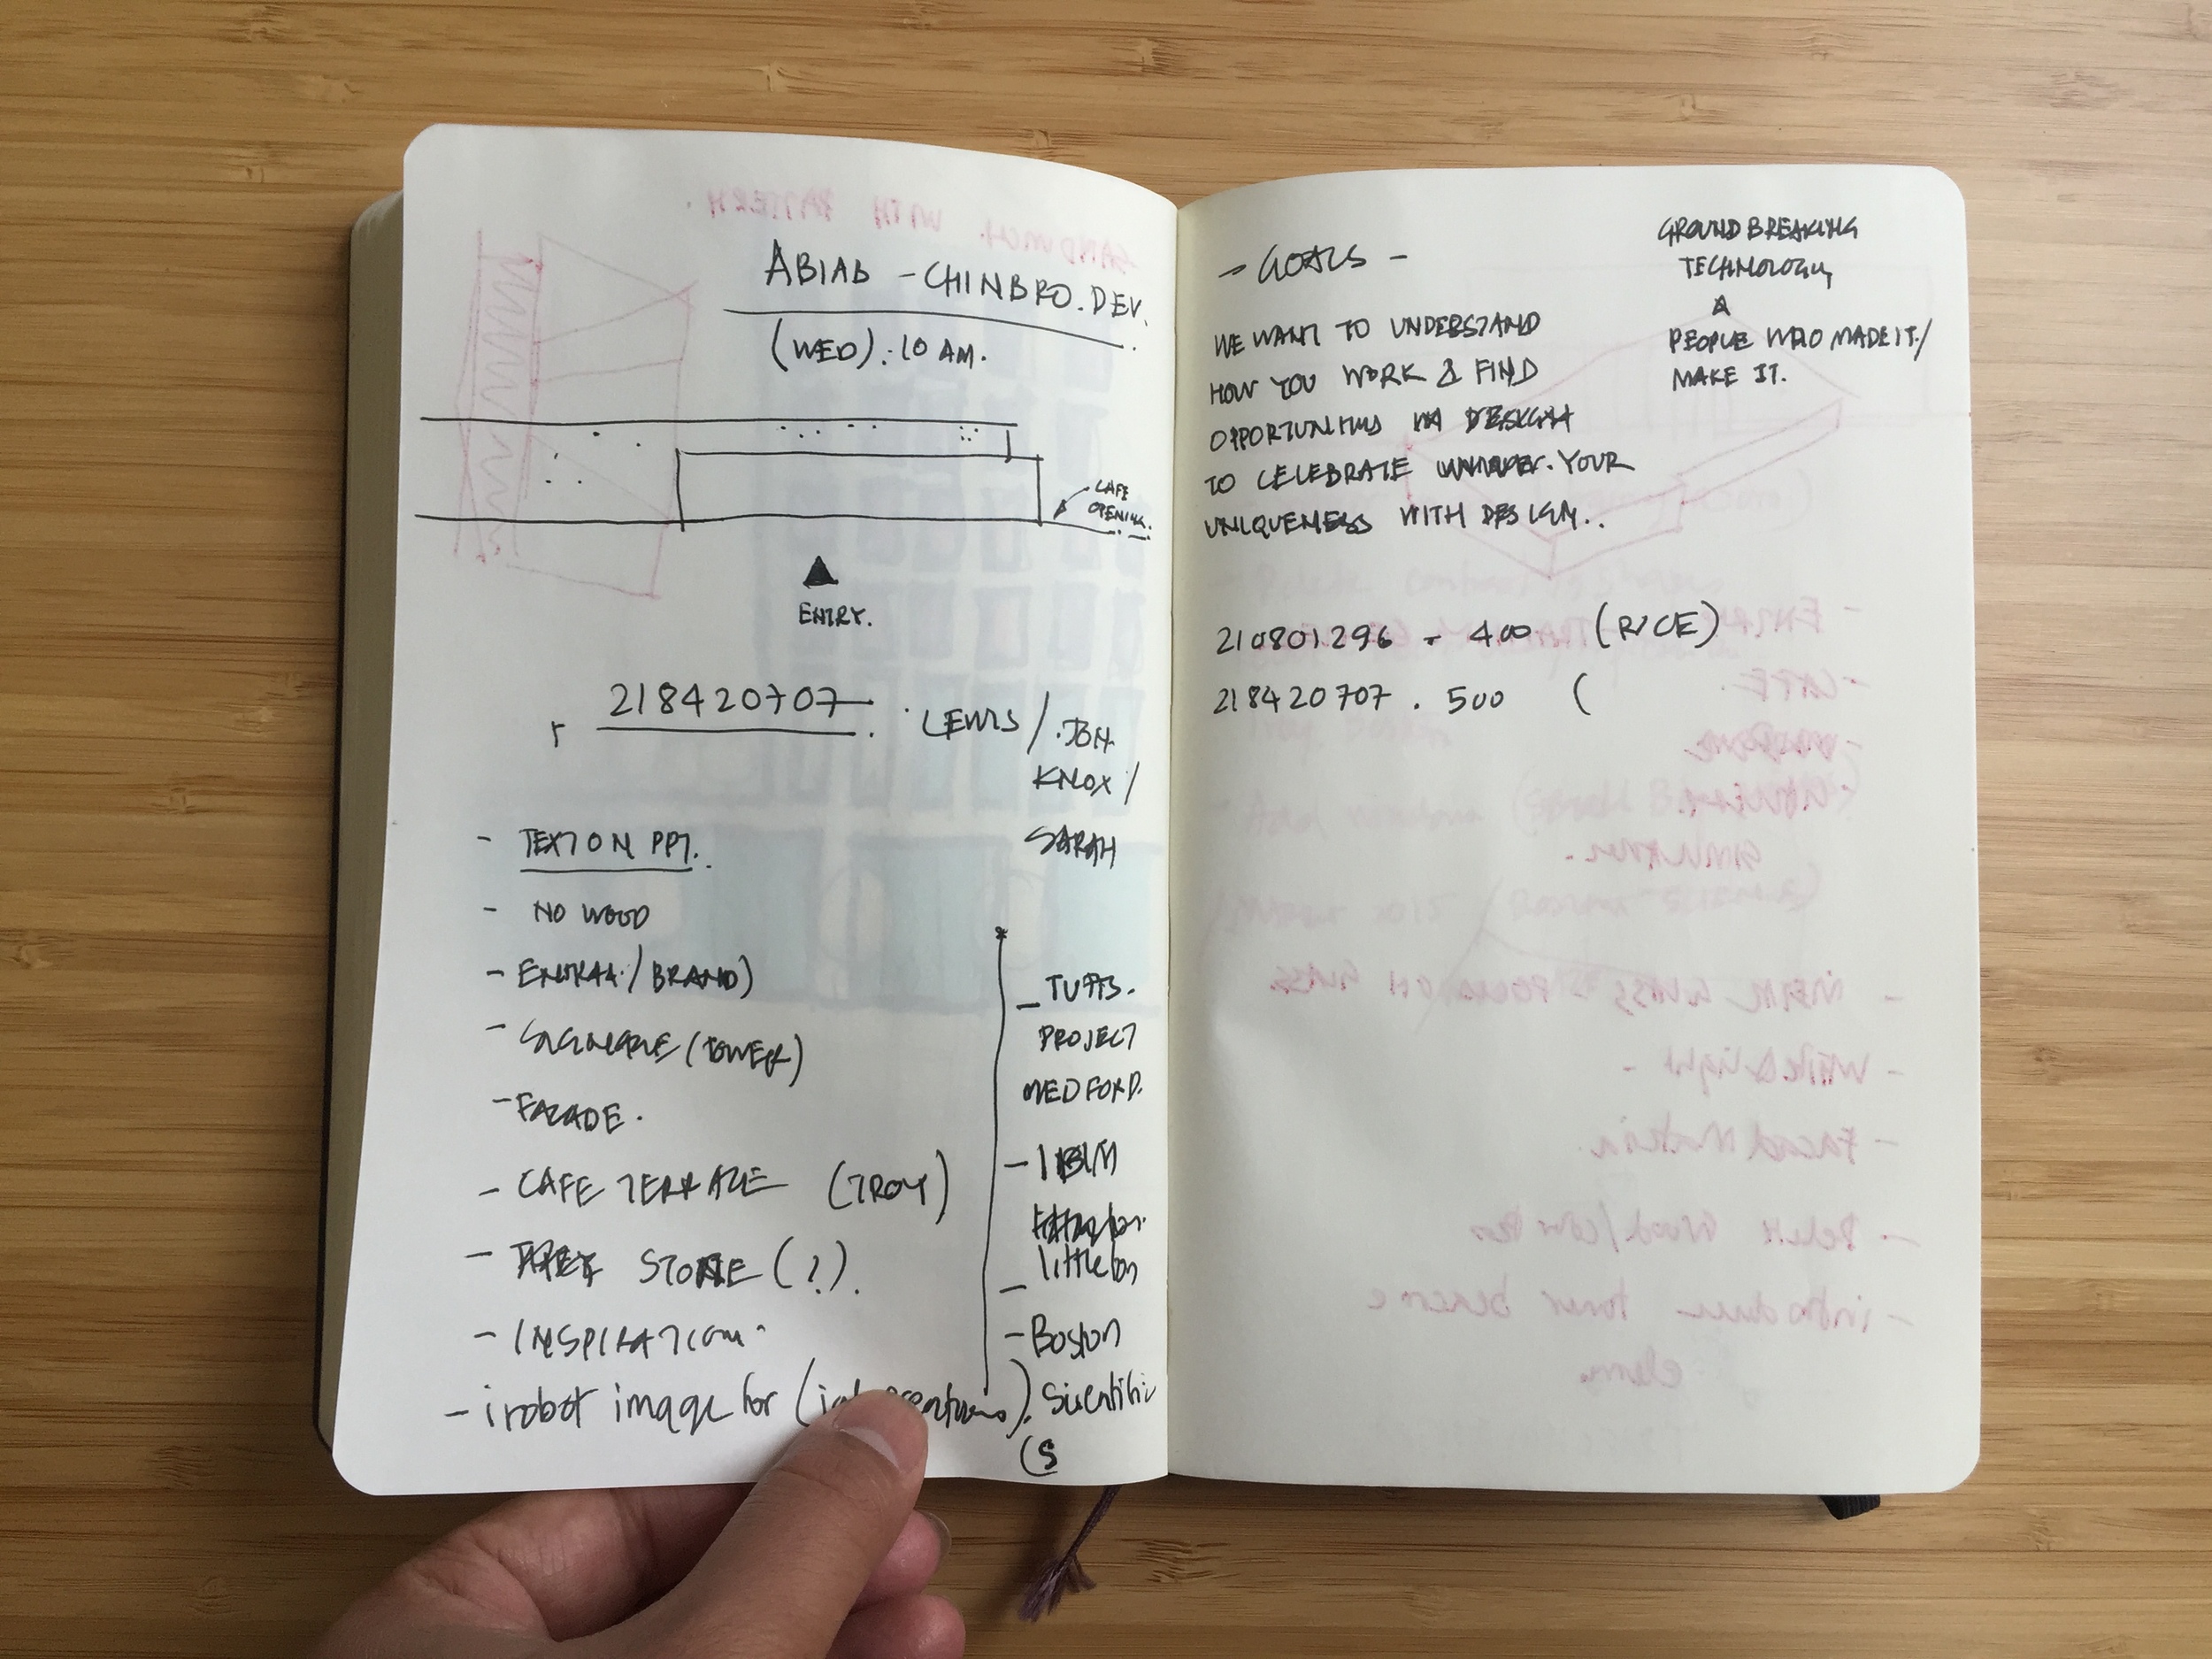 ABIAB - CHINBRO. DEV.
(WED). 10 AM.
CAFE
OPENING.
ENTRY.
218420707. LEWIS / JOH.
KNOX /
SARAH
- TEXT ON PPT.
- NO WOOD
- / BRAND)
- (TOWER)
- FACADE.
- CAFE TERRAZE (TROY)
- STONE (?).
- INSPIRATION.
- irobot image for (
- TUFTS.
PROJECT
MEDFORD.
- IBM
- littleton
- Boston
Scientific
(S
- GOALS -
WE WANT TO UNDERSTAND
HOW YOU WORK & FIND
OPPORTUNITIES IN DESIGN
TO CELEBRATE YOUR
UNIQUENESS WITH DESIGN..
GROUND BREAKING
TECHNOLOGY
&
PEOPLE WHO MADE IT /
MAKE IT.
210801296 - 400 (RICE)
218420707 . 500 (